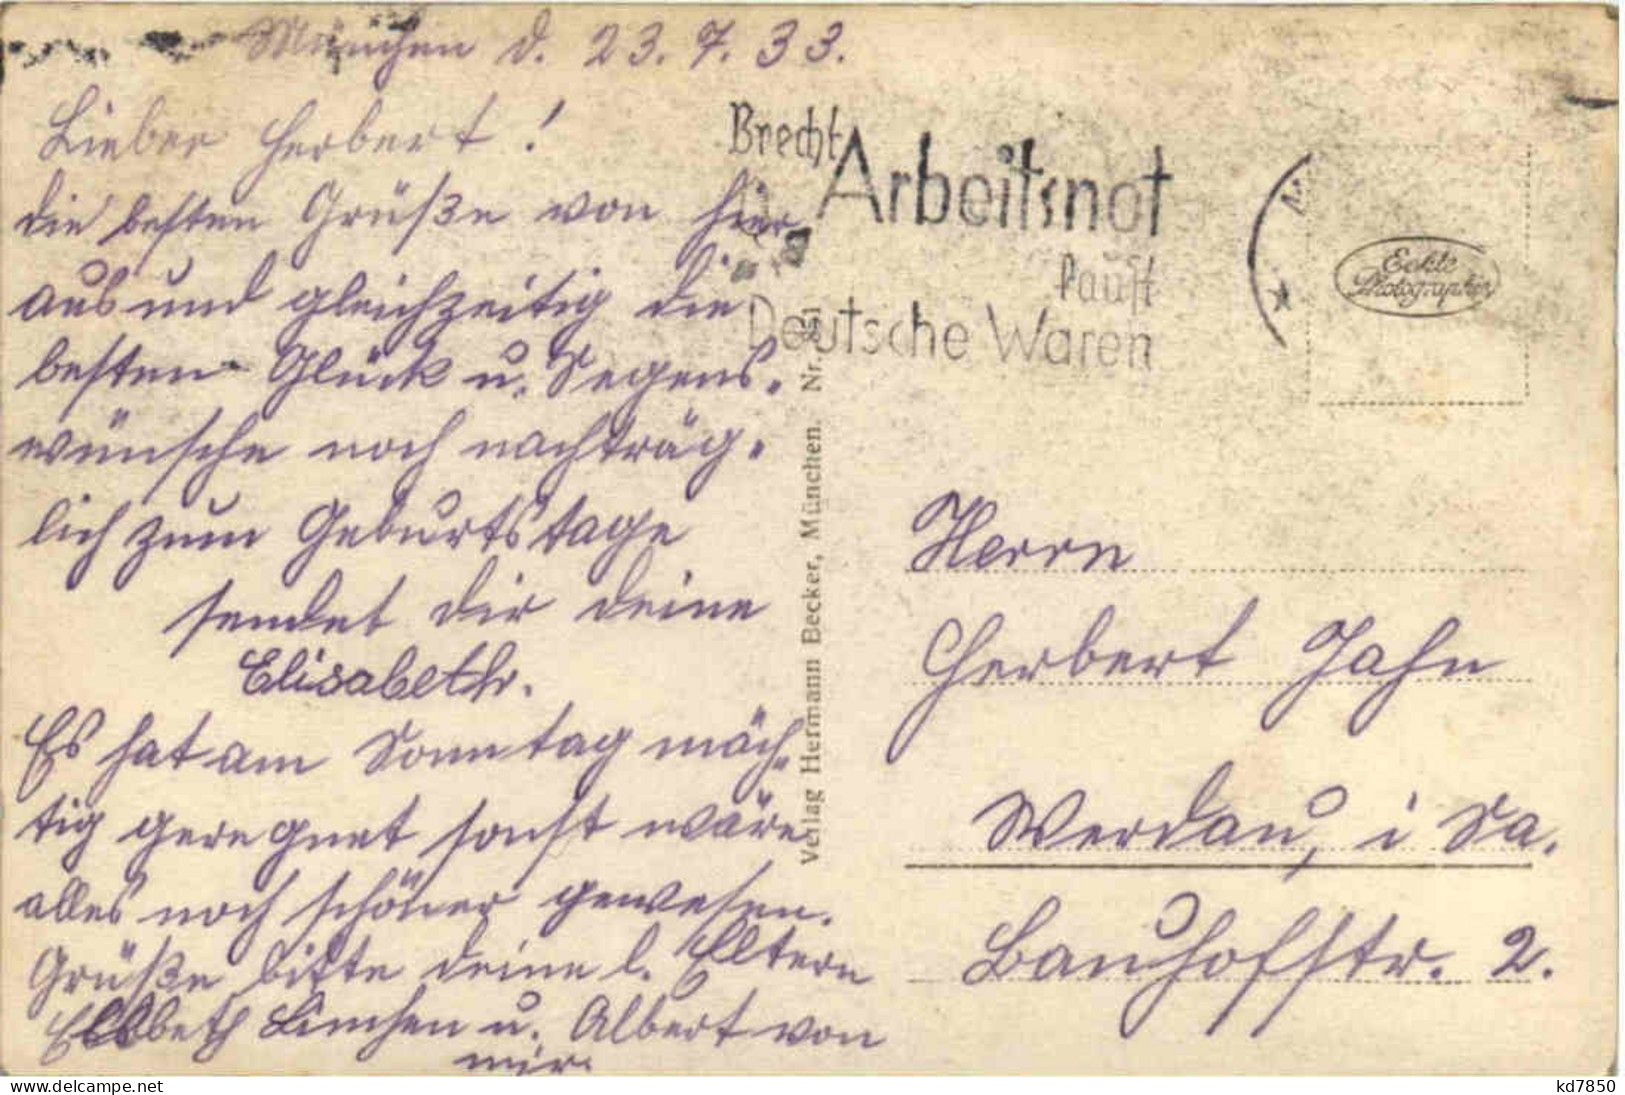 München d. 23. 7. 33.
Lieber Herbert!
die besten Grüße von hier
aus und gleichzeitig die
besten Glück u. Segens-
wünsche noch nachträg-
lich zum Geburtstage
sendet dir deine
Elisabeth.
Es hat am Sonntag mäch-
tig geregnet sonst wäre
alles noch schöner gewesen.
Grüße bitte deine l. Eltern
Elsbeth Linchen u. Albert von
mir.
Verlag Hermann Becker, München. Nr.
Brecht
Arbeitsnot
kauft
Deutsche Waren
Echte
Photographie
Herrn
Herbert Jahn
Werdau, i Sa.
Bauhofstr. 2.
kd7850